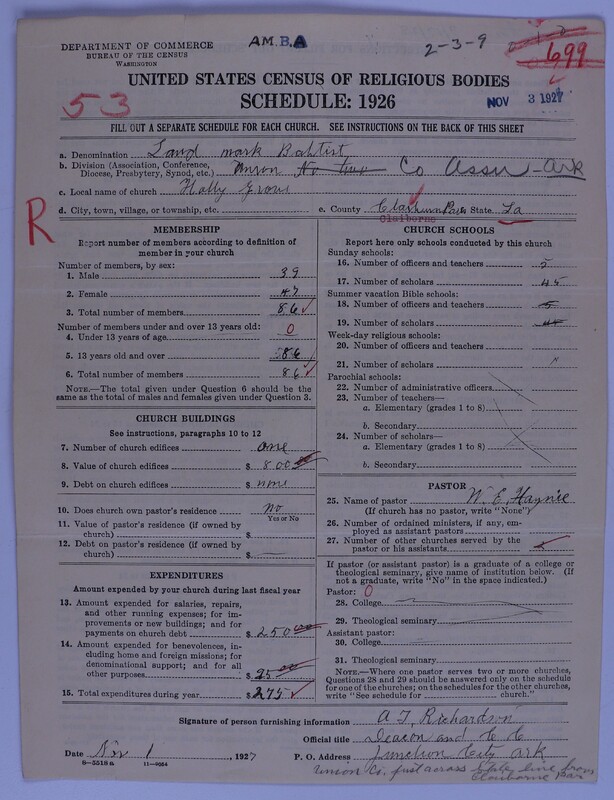 DEPARTMENT OF COMMERCE
BUREAU OF THE CENSUS
WASHINGTON
A.M.B.A
2-3-9
699
53
UNITED STATES CENSUS OF RELIGIOUS BODIES
SCHEDULE: 1926
NOV 3 1927
FILL OUT A SEPARATE SCHEDULE FOR EACH CHURCH. SEE INSTRUCTIONS ON THE BACK OF THIS SHEET
a. Denomination Land mark Baptist
b. Division (Association, Conference, Diocese, Presbytery, Synod, etc.) Union Co Assn - Ark
c. Local name of church Holly Grove
d. City, town, village, or township, etc.
e. County Claiborne State La
R
MEMBERSHIP
Report number of members according to definition of member in your church
Number of members, by sex:
1. Male 39
2. Female 47
3. Total number of members 86
Number of members under and over 13 years old:
4. Under 13 years of age 0
5. 13 years old and over 86
6. Total number of members 86
NOTE.—The total given under Question 6 should be the same as the total of males and females given under Question 3.
CHURCH BUILDINGS
See instructions, paragraphs 10 to 12
7. Number of church edifices one
8. Value of church edifices $ 800 00
9. Debt on church edifices $ none
10. Does church own pastor's residence? no
Yes or No
11. Value of pastor's residence (if owned by church) $
12. Debt on pastor's residence (if owned by church) $
EXPENDITURES
Amount expended by your church during last fiscal year
13. Amount expended for salaries, repairs, and other running expenses; for improvements or new buildings; and for payments on church debt $ 250 00
14. Amount expended for benevolences, including home and foreign missions; for denominational support; and for all other purposes $ 25 00
15. Total expenditures during year $ 275
CHURCH SCHOOLS
Report here only schools conducted by this church
Sunday schools:
16. Number of officers and teachers 5
17. Number of scholars 45
Summer vacation Bible schools:
18. Number of officers and teachers 5
19. Number of scholars
Week-day religious schools:
20. Number of officers and teachers
21. Number of scholars
Parochial schools:
22. Number of administrative officers
23. Number of teachers—
a. Elementary (grades 1 to 8)
b. Secondary
24. Number of scholars—
a. Elementary (grades 1 to 8)
b. Secondary
PASTOR
25. Name of pastor W. E. Haynie
(If church has no pastor, write "None")
26. Number of ordained ministers, if any, employed as assistant pastors
27. Number of other churches served by the pastor or his assistants
If pastor (or assistant pastor) is a graduate of a college or theological seminary, give name of institution below. (If not a graduate, write "No" in the space indicated.)
Pastor: 0
28. College
29. Theological seminary
Assistant pastor:
30. College
31. Theological seminary
NOTE.—Where one pastor serves two or more churches, Questions 28 and 29 should be answered only on the schedule for one of the churches; on the schedules for the other churches, write "See schedule for church."
Signature of person furnishing information A T Richardson
Official title Deacon and C C
Date Nov 1 1927
P. O. Address Junction City Ark
8-5518a 11-9034
Union Co. just across State line from Claiborne Par